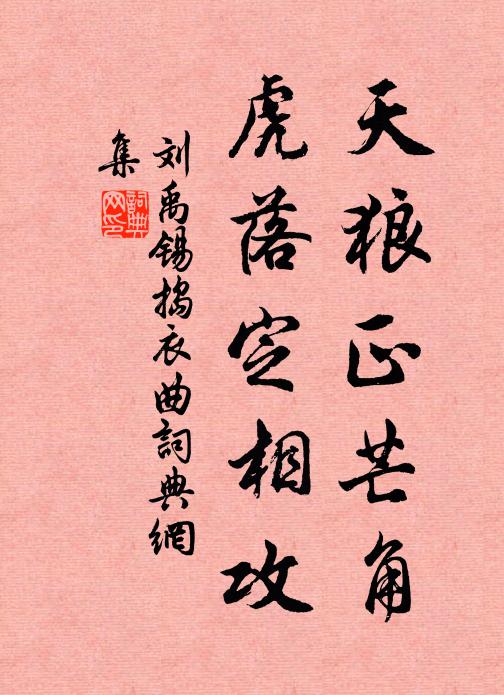 天狼正芒角
虎落定相攻
刘禹锡捣衣曲詞典網
集
詞典網印